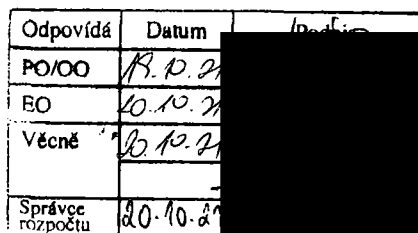 Odpovídá Datum
PO/OO
EO
Věcně 20.10.21
Správce
rozpočtu 20.10.21